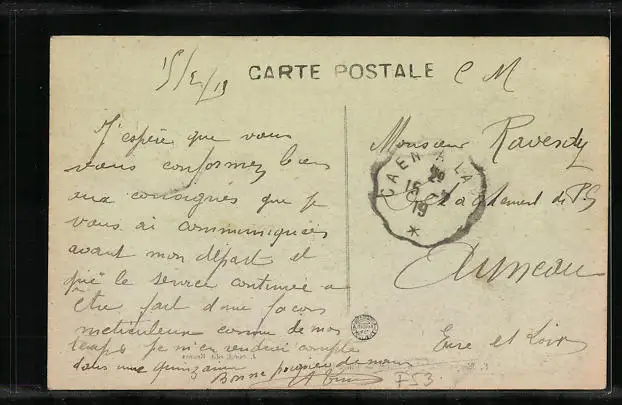 15/2/19
CARTE POSTALE
C M
J'espère que vous
vous conformez bien
aux consignes que je
vous ai communiquées
avant mon départ et
que le service continue a
être fait d'une façon
meticuleuse comme de mon
temps je m'en rendrai compte
dans une quinzaine
Bonne poignée de main
Monsieur
CAEN A LA
15
19
Détachement de P.G
Auneau
Eure et Loir
F53